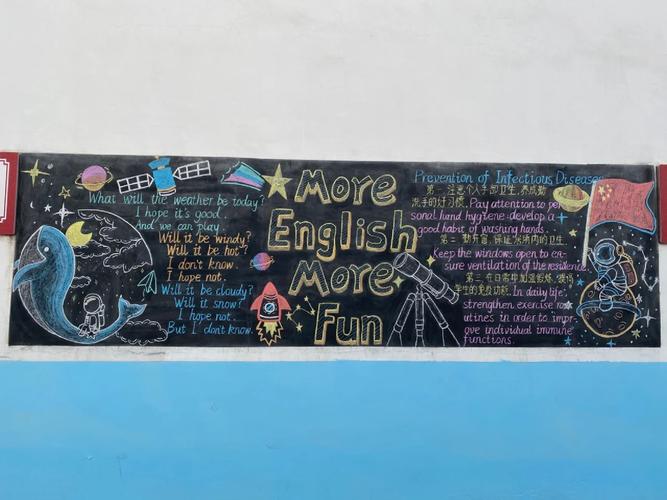 What will the weather be today?
I hope it's good.
And we can play.
Will it be windy?
Will it be hot?
I don't know.
I hope not.
Will it be cloudy?
Will it snow?
I hope not.
But I don't know.
More
English
More
Fun
Prevention of Infectious Diseases
第一 注意个人手部卫生,养成勤
洗手的好习惯. Pay attention to per
sonal hand hygiene develop a
good habit of washing hands.
第二 勤开窗,保证 内的卫生
Keep the windows open to en-
sure ventilation of the residence.
第三 在日常中加强锻炼,提高
学生的免疫功能. In daily life,
strengthen exercise ro
utines in order to impr-
ove individual immune
functions.